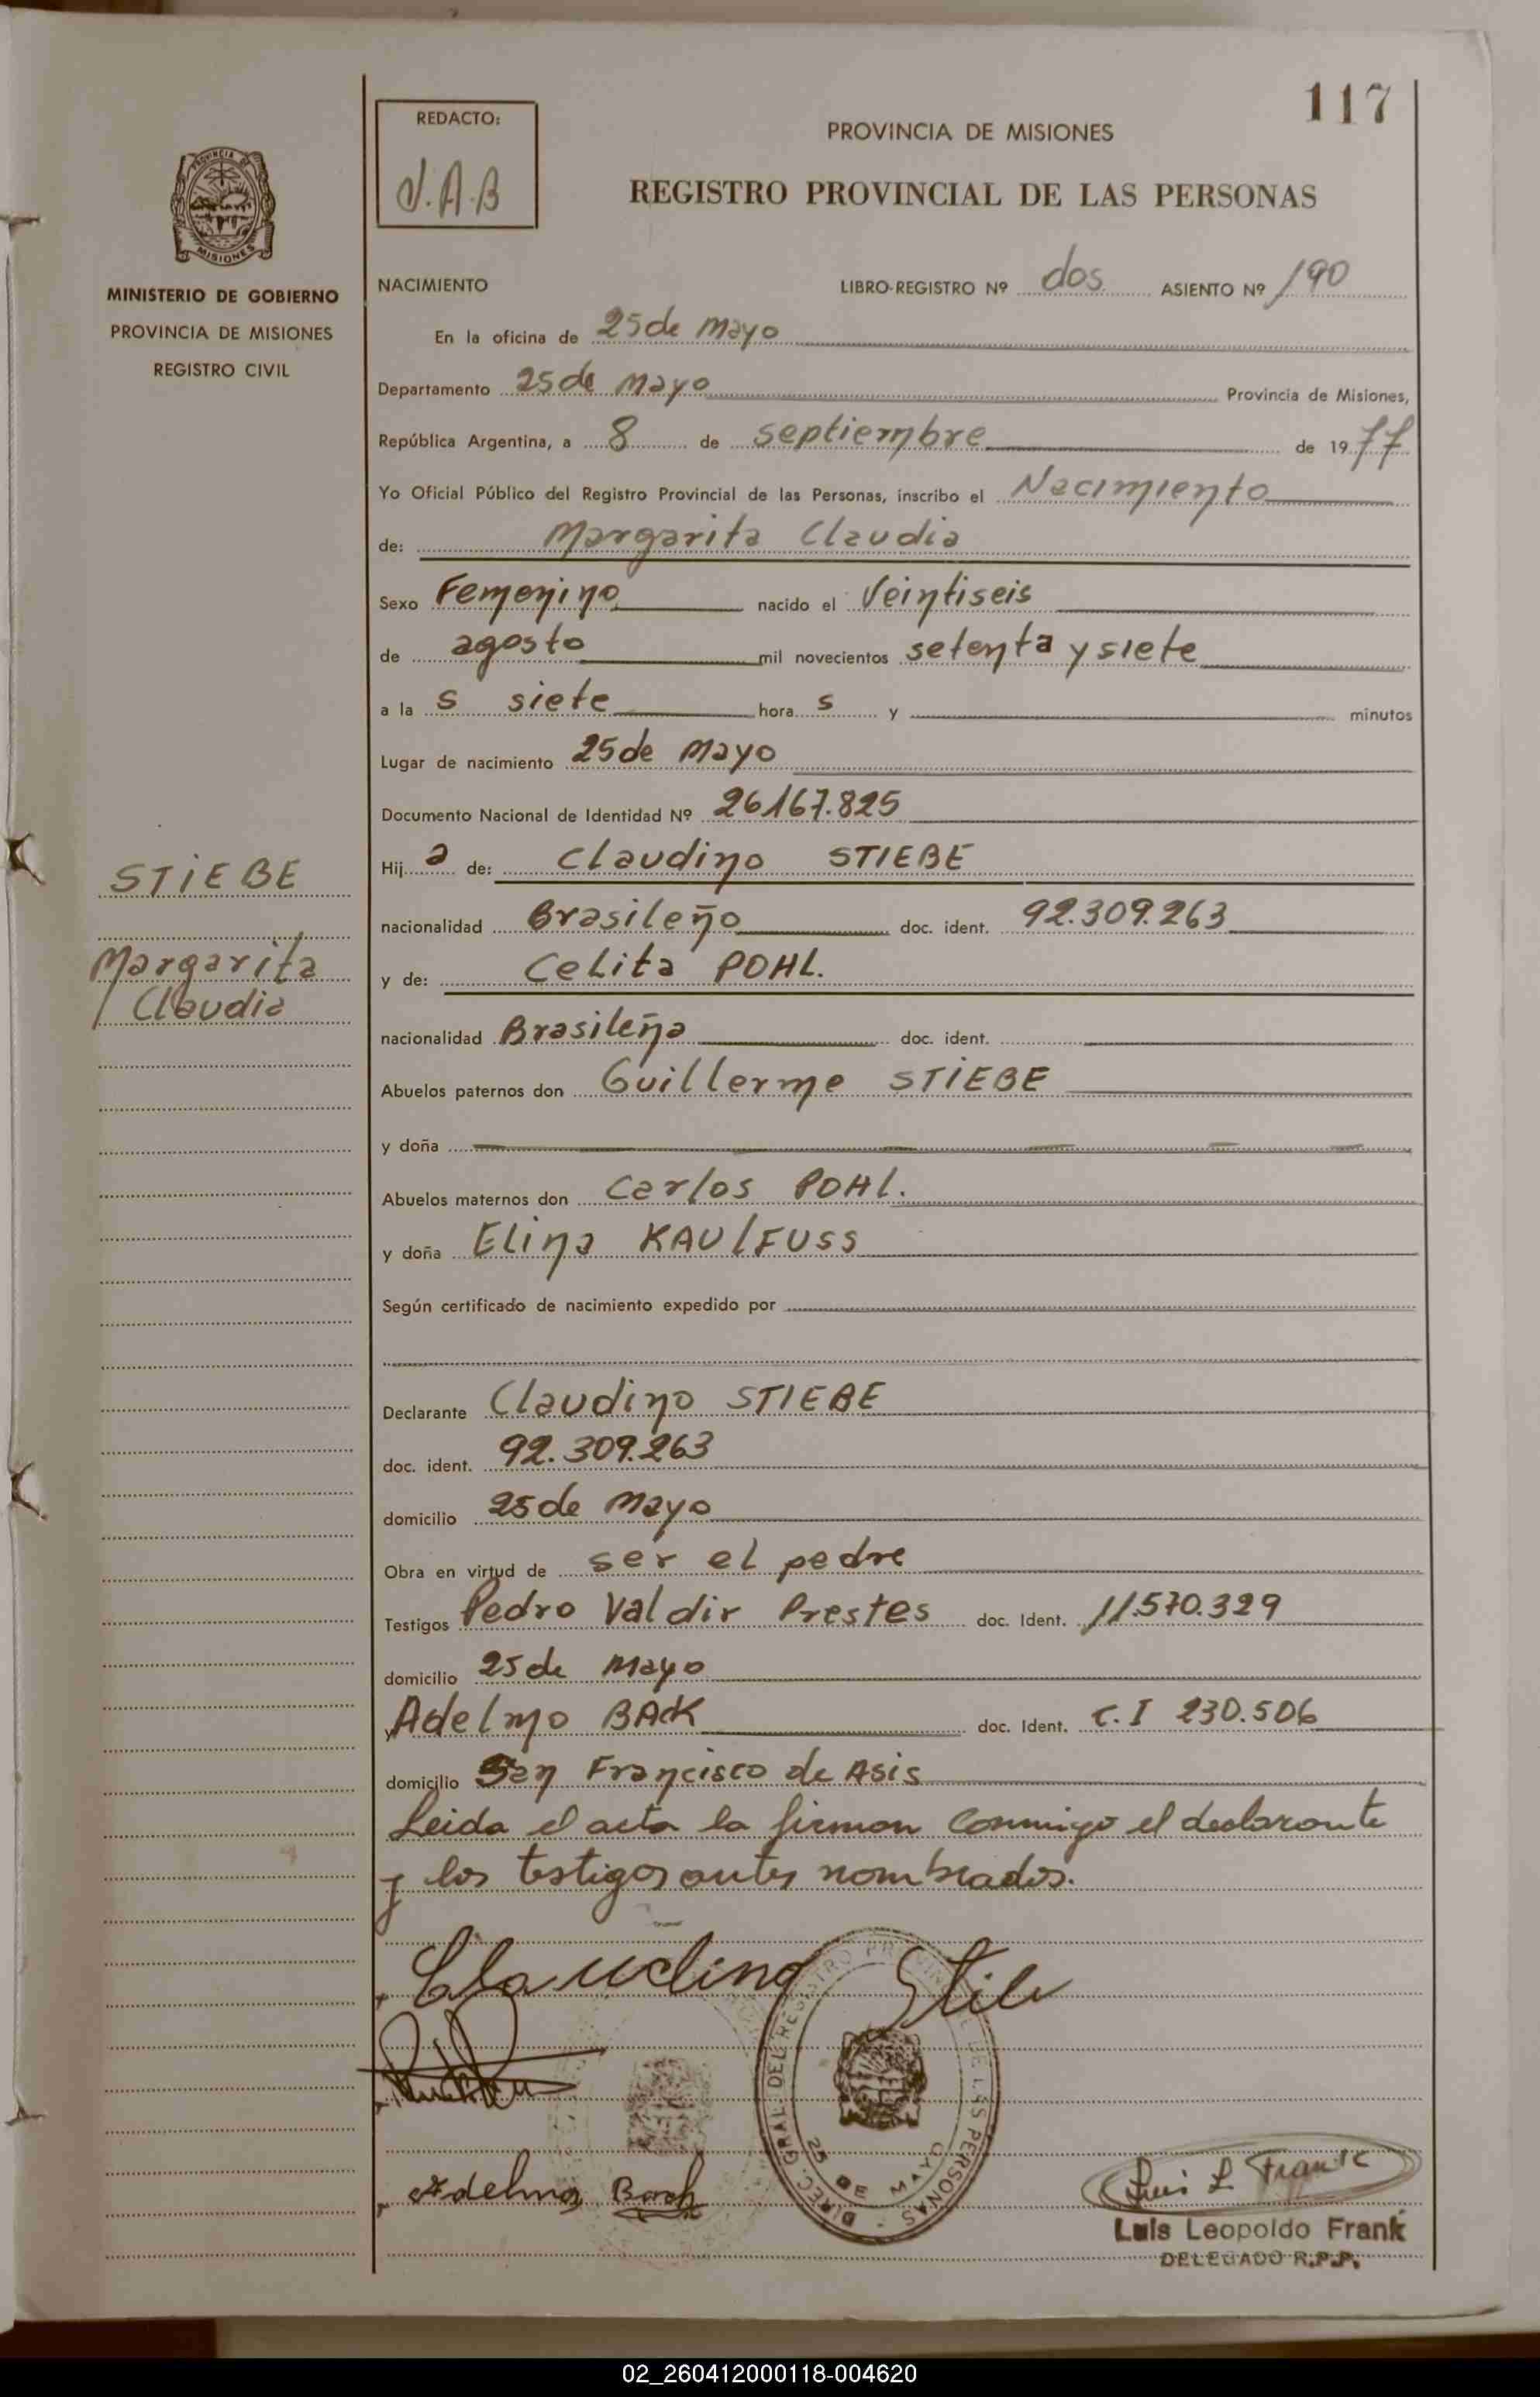 117
REDACTO:
J.A.B
PROVINCIA DE MISIONES
REGISTRO PROVINCIAL DE LAS PERSONAS
PROVINCIA DE
MISIONES
MINISTERIO DE GOBIERNO
PROVINCIA DE MISIONES
REGISTRO CIVIL
NACIMIENTO LIBRO-REGISTRO Nº dos ASIENTO Nº 190
En la oficina de 25 de Mayo
Departamento 25 de Mayo Provincia de Misiones,
República Argentina, a 8 de septiembre de 1977
Yo Oficial Público del Registro Provincial de las Personas, inscribo el Nacimiento
de: Margarita Claudia
Sexo Femenino nacido el Veintiseis
de agosto mil novecientos setenta y siete
a la s siete hora s y minutos
Lugar de nacimiento 25 de Mayo
Documento Nacional de Identidad Nº 26167.825
Hij a de: Claudino STIEBE
STIEBE
nacionalidad Brasileño doc. ident. 92.309.263
Margarita
Claudia
y de: Celita POHL.
nacionalidad Brasileña doc. ident.
Abuelos paternos don Guillerme STIEBE
y doña
Abuelos maternos don Carlos POHL.
y doña Elina KAULFUSS
Según certificado de nacimiento expedido por
Declarante Claudino STIEBE
doc. ident. 92.309.263
domicilio 25 de Mayo
Obra en virtud de ser el padre
Testigos Pedro Valdir Prestes doc. Ident. 11.570.329
domicilio 25 de Mayo
y Adelmo BACK doc. Ident. C.I 230.506
domicilio San Francisco de Asis
Leida el acta la firman conmigo el declarante
y los testigos antes nombrados.
Claudino Stibe
DIREC. GRAL. DEL REGISTRO PROVINCIAL DE LAS PERSONAS
25 DE MAYO
Adelmo Back
Luis L. Frank
Luis Leopoldo Frank
DELEGADO R.P.P.
02_260412000118-004620